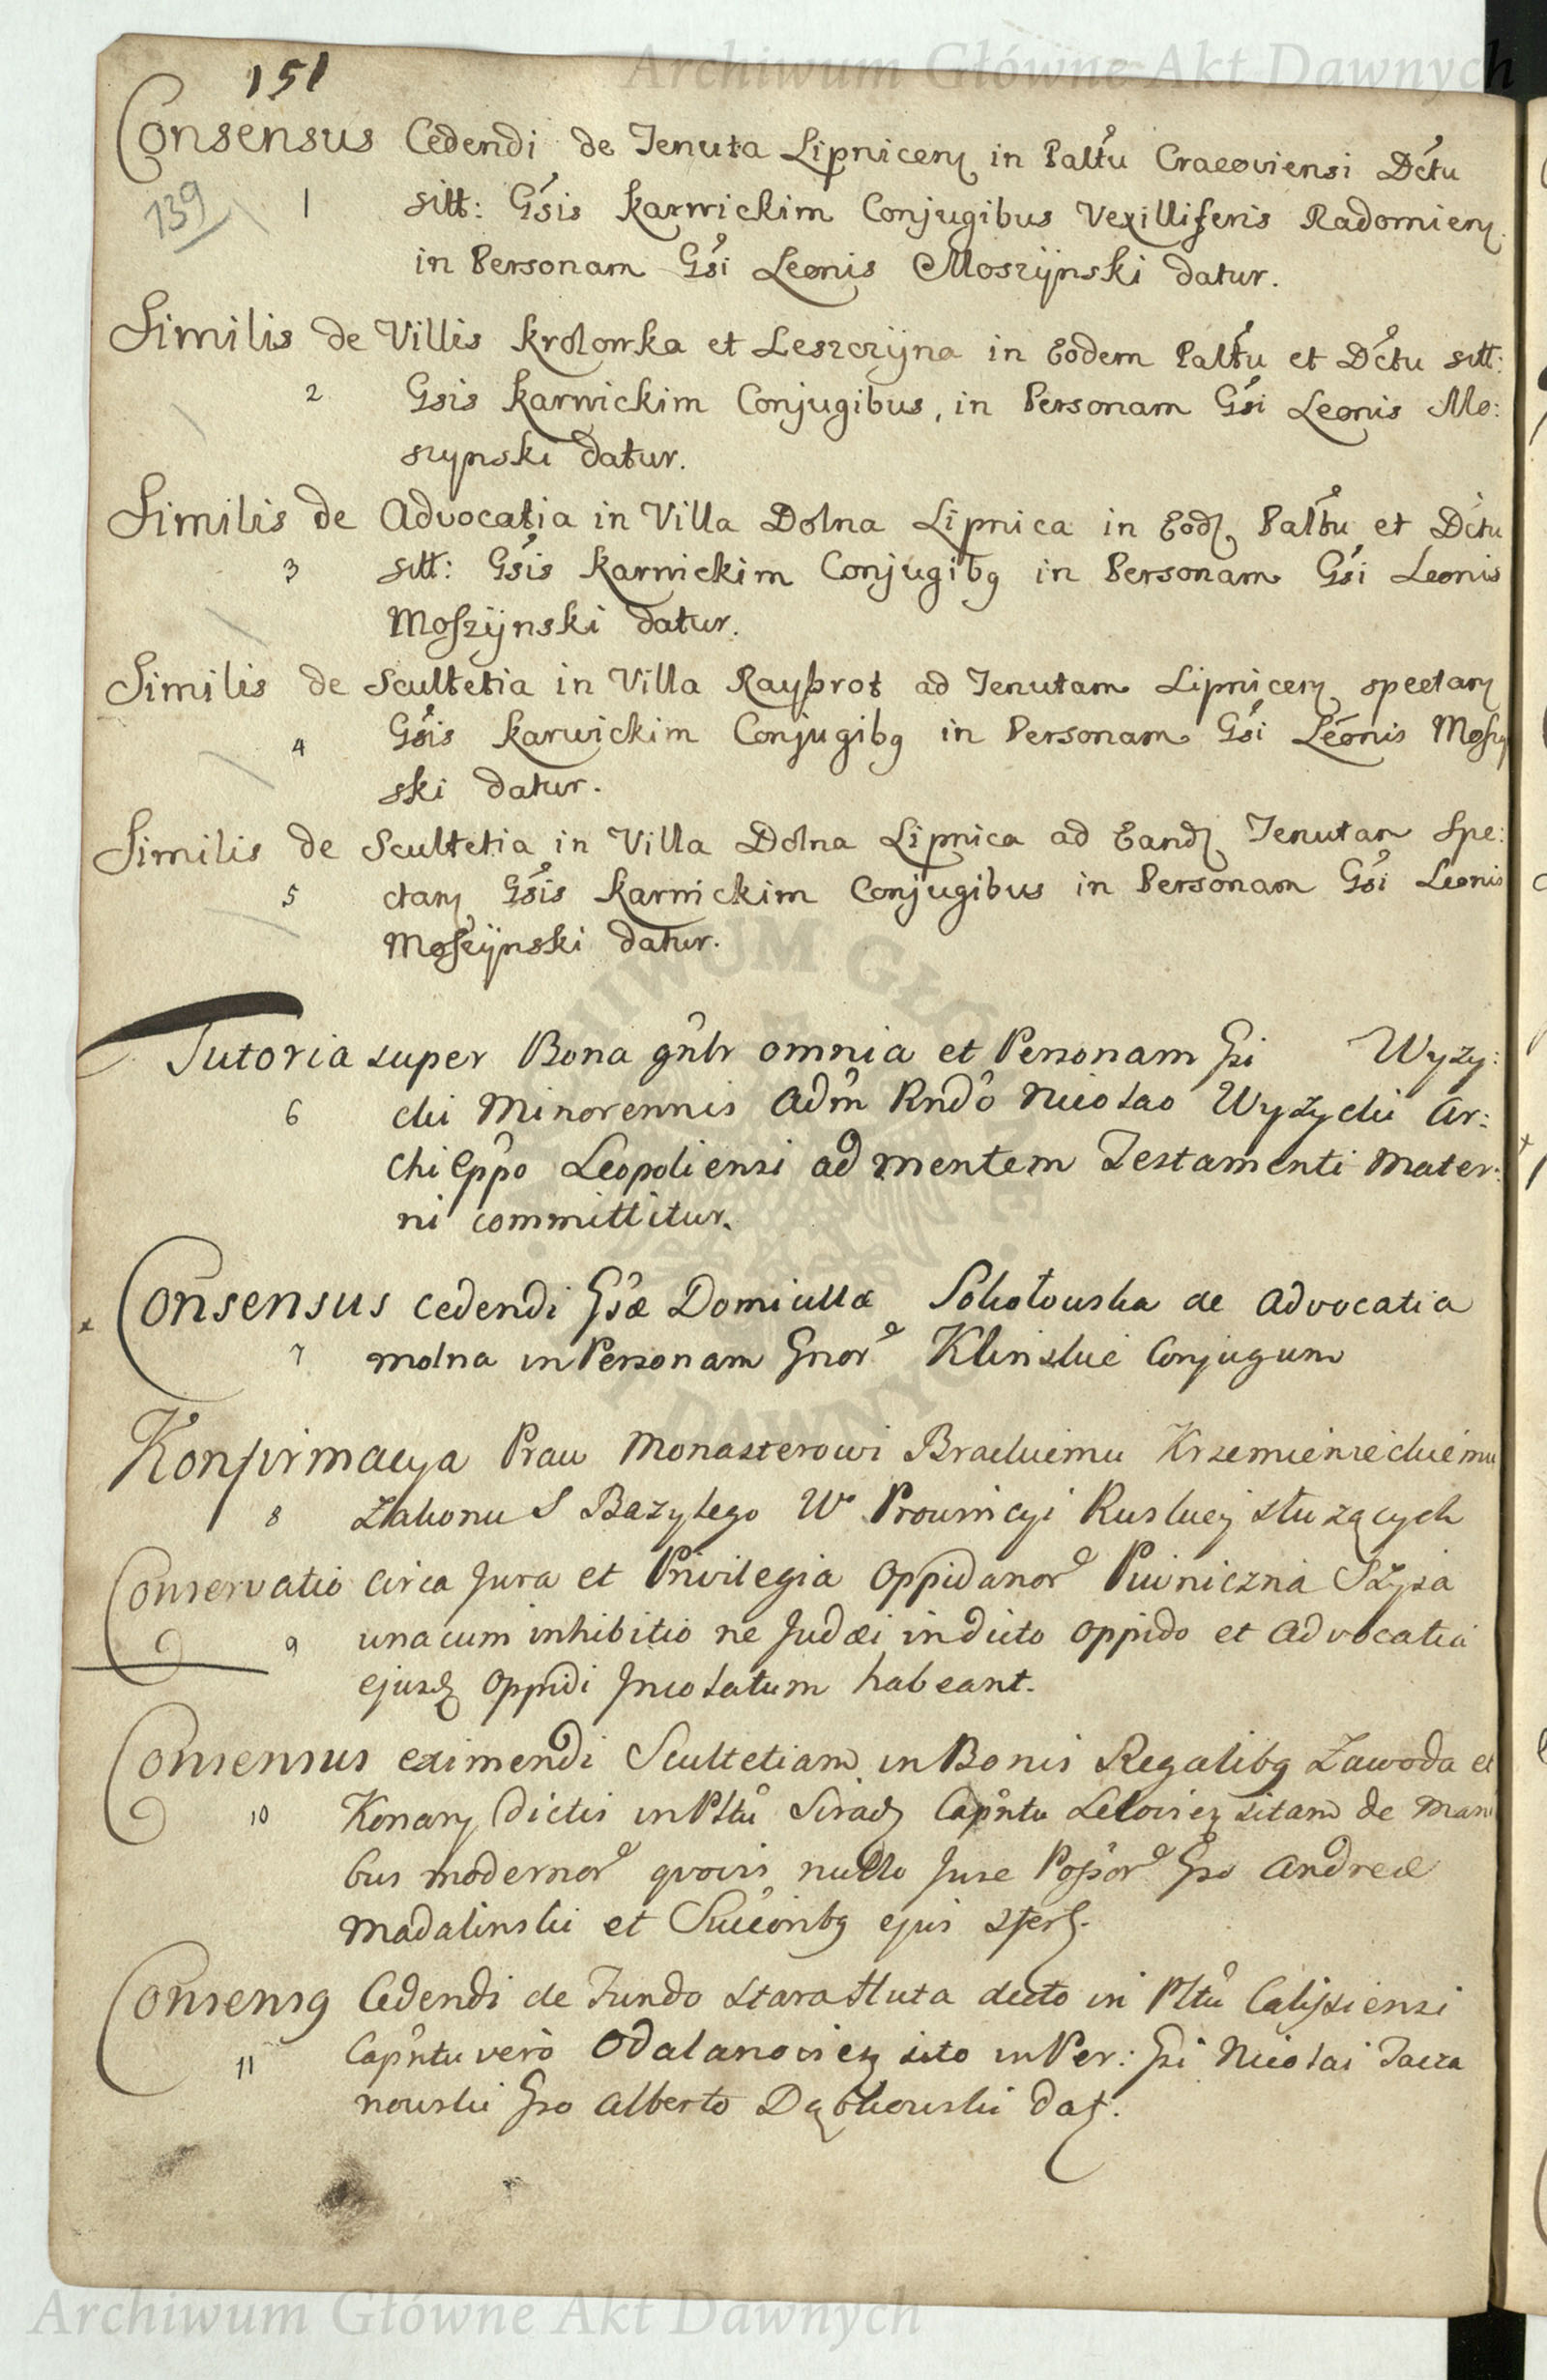 Archiwum Główne Akt Dawnych
151
Consensus Cedendi de Tenuta Lipnicen in Palttu Cracoviensi Dctu
139 1 sitt: Gsis Karwickim Conjugibus Vexilliferis Radomien
in Personam Gsi Leonis Moszÿnski datur.
Similis de Villis Krolowka et Leszczÿna in Eodem Palttu et Dctu sitt:
2 Gsis Karwickim Conjugibus, in Personam Gsi Leonis Mo:
szynski datur.
Similis de Advocatia in Villa Dolna Lipnica in Eod Palttu et Dctu
3 sitt: Gsis Karwickim Conjugibg in Personam Gsi Leonis
Moszÿnski datur.
Similis de Scultetia in Villa Raybrot ad Tenutam Lipnicen spectan
4 Gsis Karwickim Conjugibg in Personam Gsi Leonis Moszÿ
ski datur.
Similis de Scultetia in Villa Dolna Lipnica ad Eand Tenutam Spe:
5 ctan Gsis Karwickim Conjugibus in Personam Gsi Leonis
Moszÿnski datur.
Tutoria super Bona gnlr omnia et Personam Gsi Wyzy:
6 cki Minorennis Adm Rndo Nicolao Wyzycki Ar:
chi Eppo Leopoliensi ad mentem Testamenti Mater:
ni committitur.
x Consensus cedendi Gsæ Domicillæ Sokołowska de Advocatia
7 molna in Personam Gnor Klinskie Conjugum
Konfirmacya Praw Monasterowi Brackiemu Krzemienieckiemu
8 Zakonu S Bazylego W Prowincyi Ruskiey służących
Conservatio circa Jura et Privilegia Oppidanor Piwniczna Szyia
9 unacum inhibitio ne Judæi in dicto oppido et advocatia
ejusd Oppidi Incolatum habeant.
Consensus eximendi Scultetiam in Bonis Regalibg Zawoda et
10 Konary dictis in Plttu Sirad Capntu Lelovien sitam de Mani
bus modernor quovis nullo Jure Possor Gso Andreæ
Madalinski et Succonibg ejus
Consensg Cedendi de Fundo Stara Huta dicto in Plttu Calissiensi
11 Capntu vero Odalanovien sito in Per: Gsi Nicolai Tacza
nowski Gso Alberto Dąbkowski dat.
Archiwum Główne Akt Dawnych